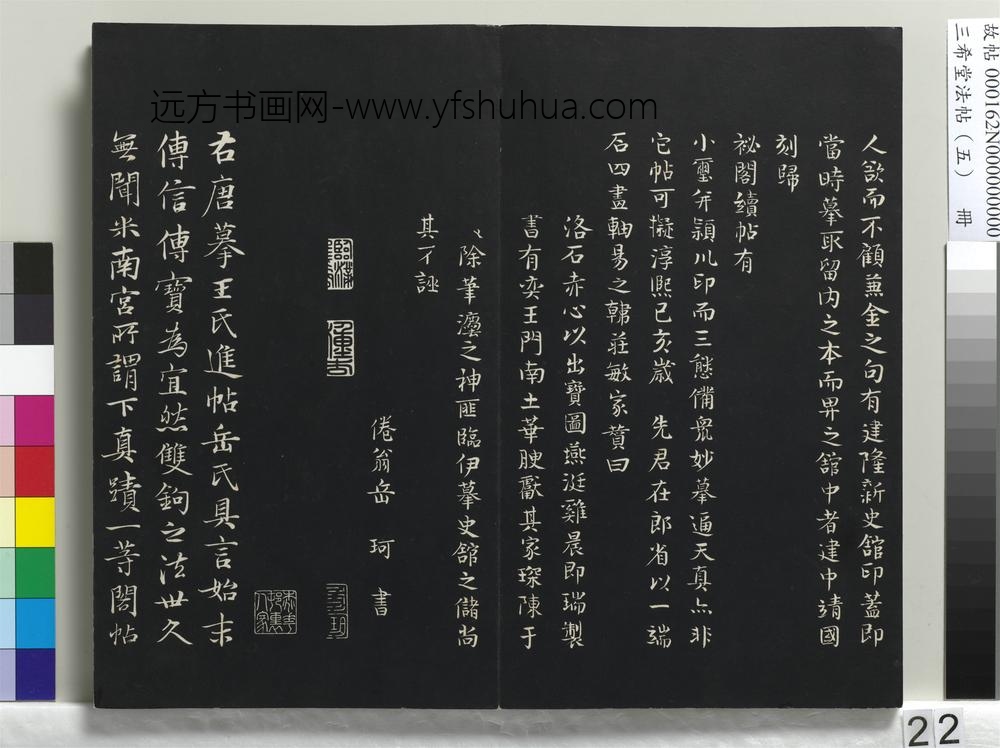 人欲而不顧蒹金之句有建隆新史館印蓋即
當時摹取留內之本而畀之館中者建中靖國
刻歸
祕閣續帖有
小璽并潁川印而三態備眾妙摹逼天真亦非
它帖可擬淳熙己亥歲 先君在郎省以一端
石四畫軸易之韓莊敏家贊曰
洛石赤心以出寶圖燕涎雞晨即瑞製
書有奕王門南土華腴厭其家琛陳于
除筆瀍之神匪臨伊摹史館之儲尚
其不誣
倦翁岳 珂 書
右唐摹王氏進帖岳氏具言始末
傳信傳寶為宜然雙鉤之法世久
無聞米南宮所謂下真蹟一等閣帖
远方书画网-www.yfshuhua.com
故帖 000162N000000000
三希堂法帖（五） 冊
22